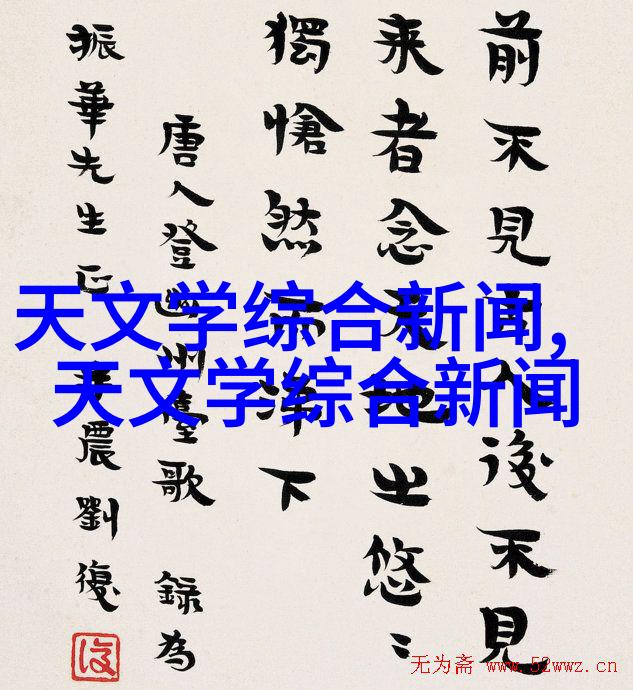 前不見古人後不見
来者念天地之悠〻
獨愴然而涕下
唐人登幽州臺歌 録為
振華先生正 半農劉復
復
天文学综合新闻,
天文学综合新闻
无为斋 www.52wwz.cn